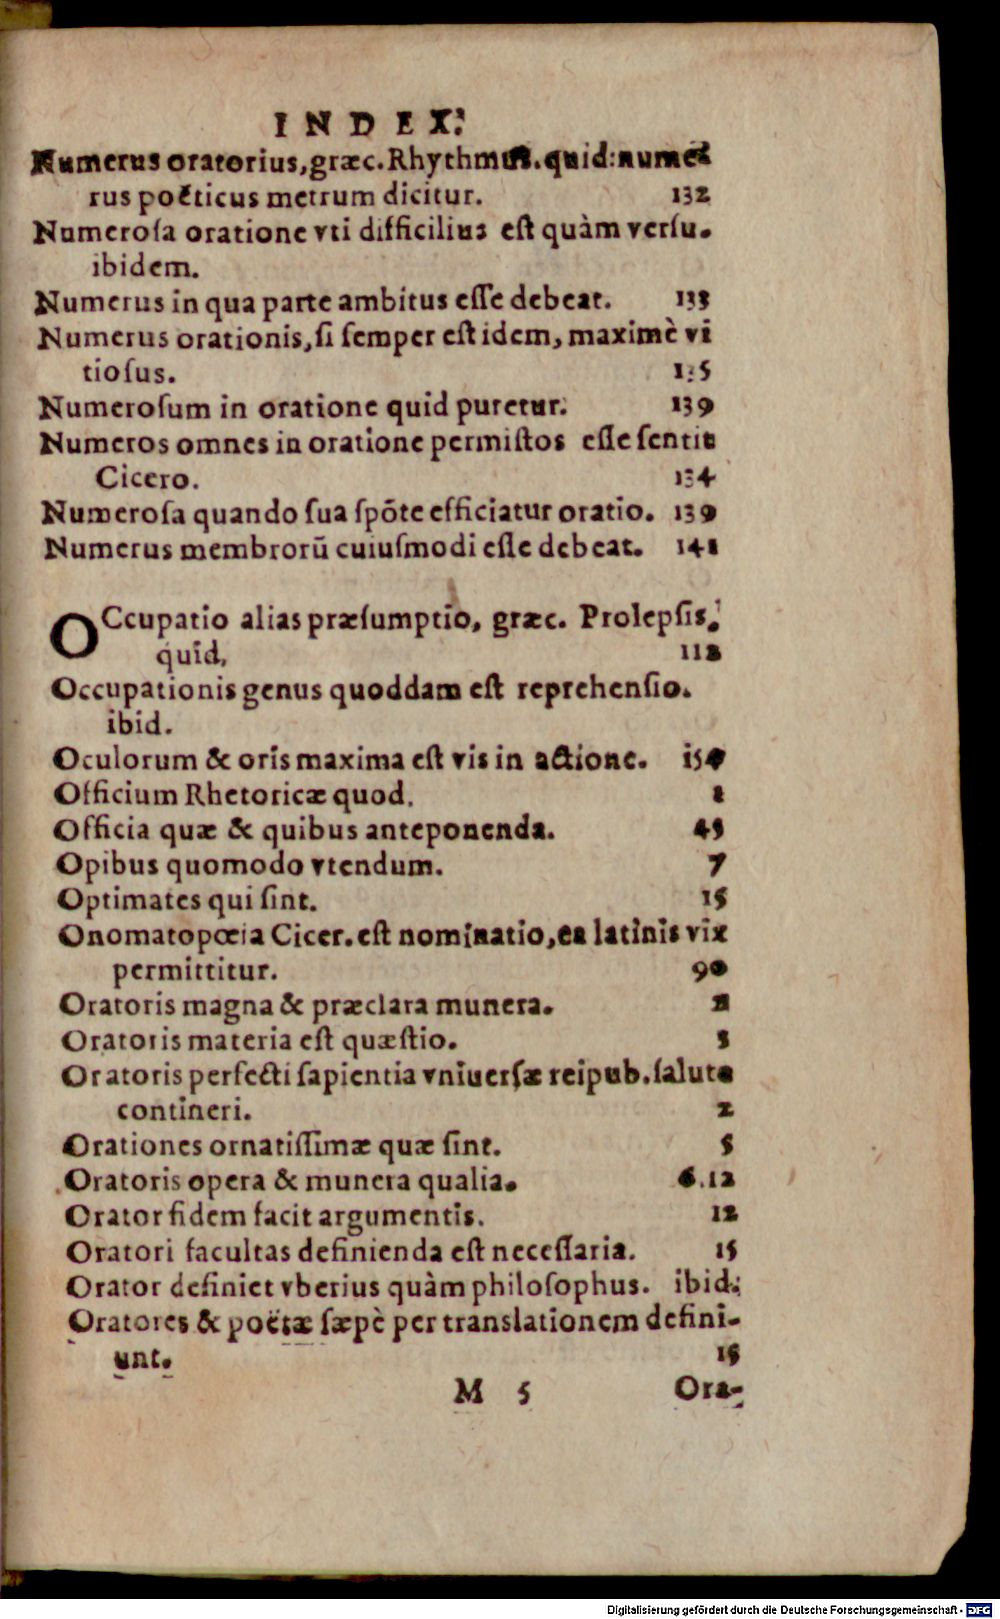 INDEX.
Numerus oratorius, græc. Rhythmus. quid: nume-
rus poëticus metrum dicitur. 132
Numeroſa oratione vti difficilius eſt quàm verſu.
ibidem.
Numerus in qua parte ambitus eſſe debeat. 133
Numerus orationis, ſi ſemper eſt idem, maximè vi
tioſus. 135
Numeroſum in oratione quid puretur. 139
Numeros omnes in oratione permiſtos eſſe ſentit
Cicero. 134
Numeroſa quando ſua ſpōte efficiatur oratio. 139
Numerus membrorū cuiuſmodi eſſe debeat. 141

OCcupatio alias præſumptio, græc. Prolepſis.
quid, 112
Occupationis genus quoddam eſt reprehenſio.
ibid.
Oculorum & oris maxima eſt vis in actione. 154
Officium Rhetoricæ quod. 1
Officia quæ & quibus anteponenda. 45
Opibus quomodo vtendum. 7
Optimates qui ſint. 15
Onomatopœia Cicer. eſt nominatio, ea latinis vix
permittitur. 90
Oratoris magna & præclara munera. 2
Oratoris materia eſt quæſtio. 3
Oratoris perfecti ſapientia vniuerſæ reipub. ſalute
contineri. 2
Orationes ornatiſſimæ quæ ſint. 5
Oratoris opera & munera qualia. 6.12
Orator fidem facit argumentis. 12
Oratori facultas definienda eſt neceſſaria. 15
Orator definiet vberius quàm philoſophus. ibid.
Oratores & poëtæ ſæpè per translationem defini-
unt. 15
M 5 Ora-
Digitalisierung gefördert durch die Deutsche Forschungsgemeinschaft - DFG